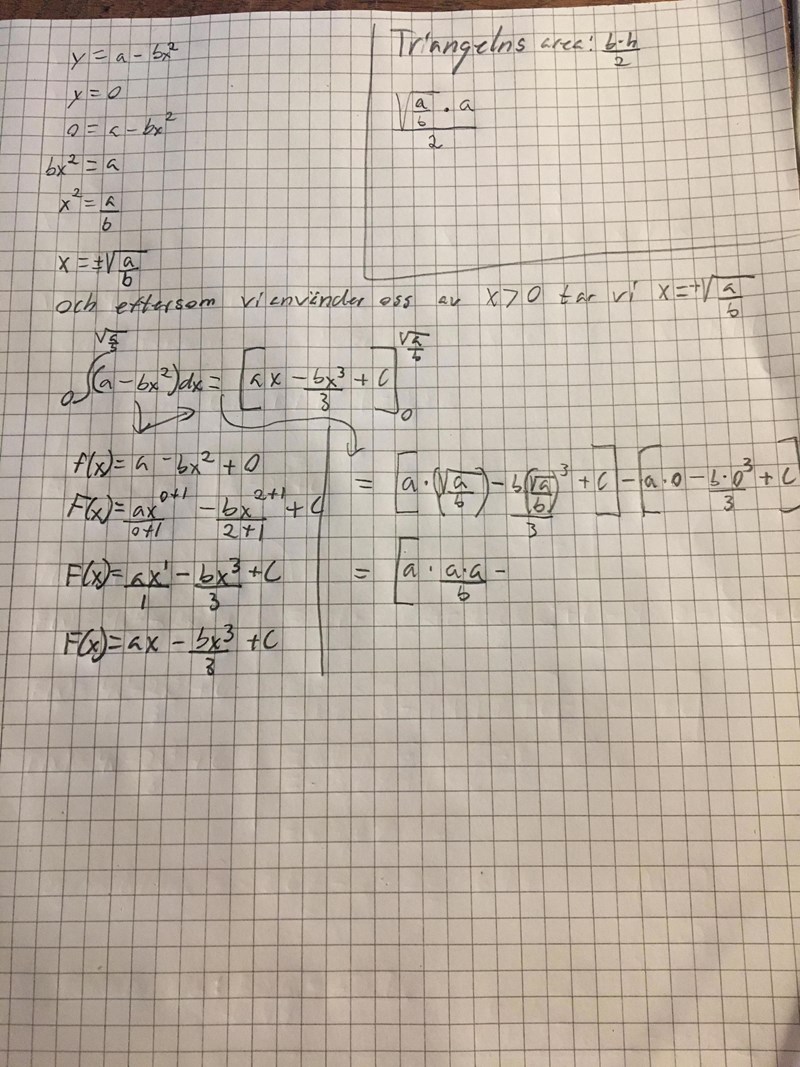 y = a - bx²
y = 0
0 = a - bx²
bx² = a
x² = a/b
x = ±√(a/b)
Triangelns area: b·h/2
√(a/b) · a / 2
Och eftersom vi använder oss av x>0 tar vi x=+√(a/b)
₀∫^√(a/b) (a - bx²)dx = [ax - bx³/3 + C]₀^√(a/b)
f(x) = a - bx² + 0
F(x) = ax⁰⁺¹/0+1 - bx²⁺¹/2+1 + C
F(x) = ax¹/1 - bx³/3 + C
F(x) = ax - bx³/3 + C
= [a·(√(a/b)) - b(√(a/b))³/3 + C] - [a·0 - b·0³/3 + C]
= [a · a·a/b -